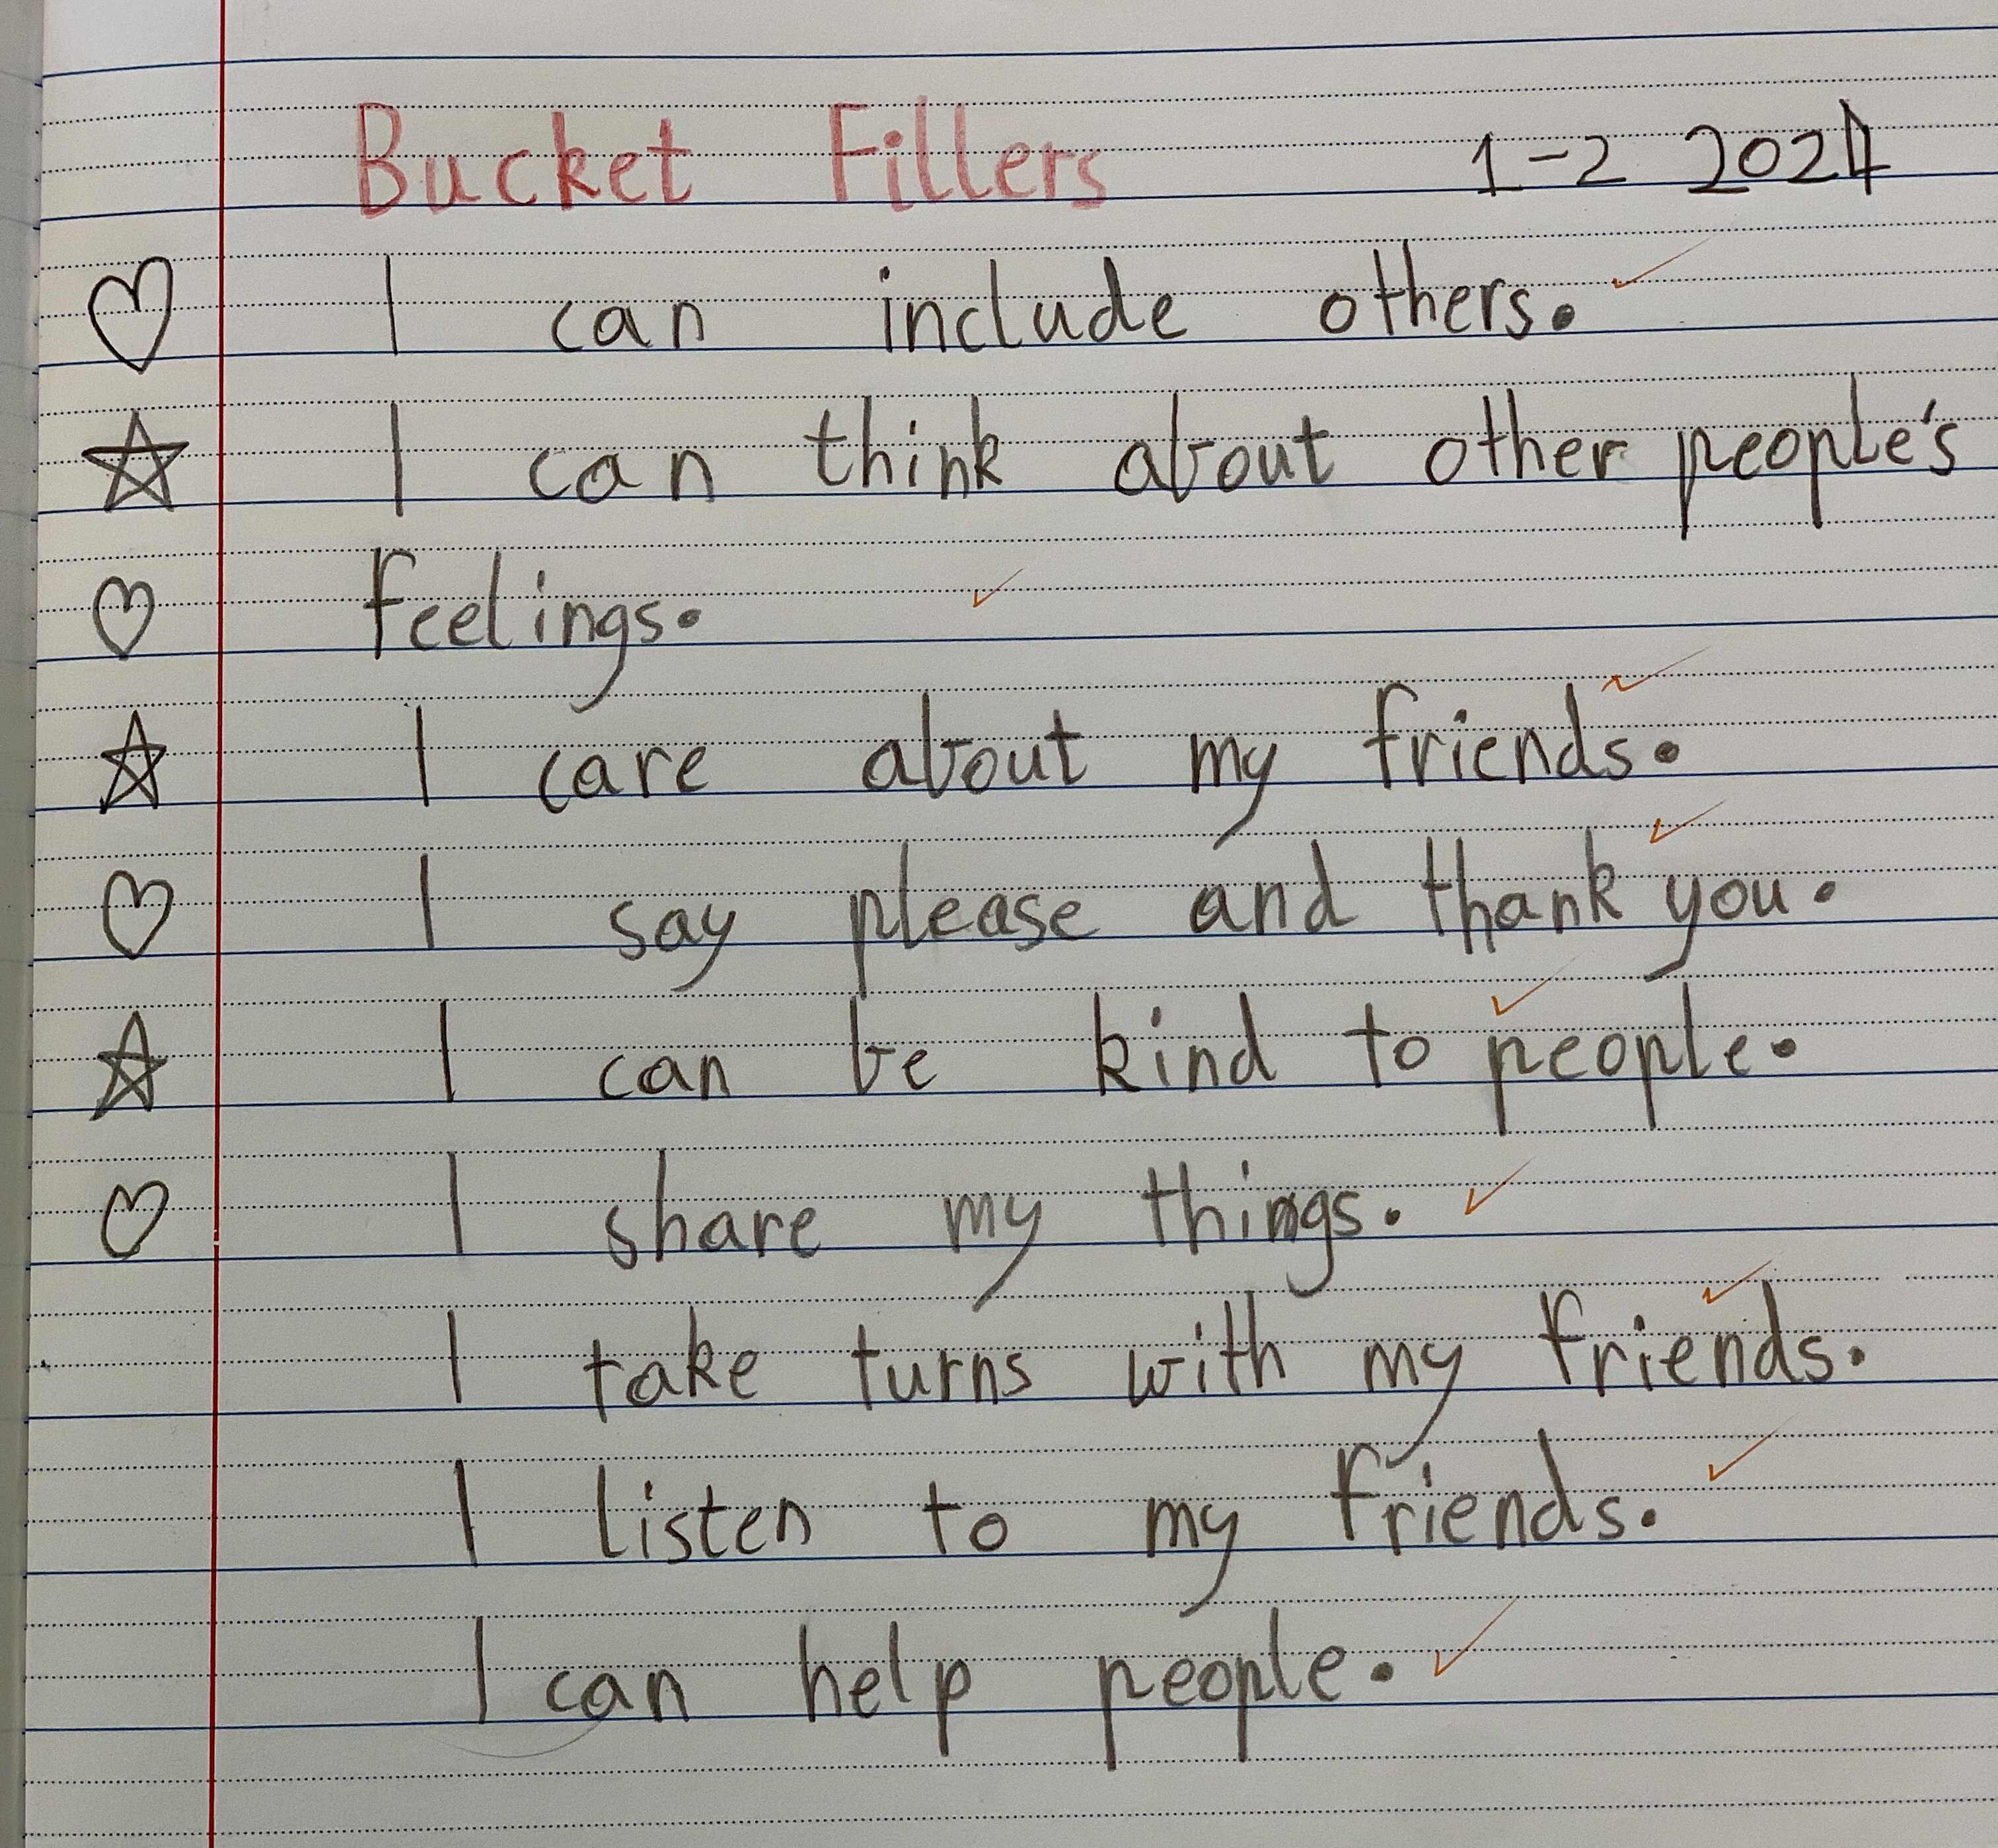 Bucket Fillers 1-2 2024
I can include others.
I can think about other people's
feelings.
I care about my friends.
I say please and thank you.
I can be kind to people.
I share my things.
I take turns with my friends.
I listen to my friends.
I can help people.